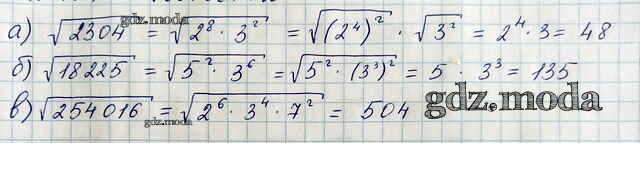 а) √2304 = √2⁸ · 3² = √(2⁴)² · √3² = 2⁴ · 3 = 48
б) √18225 = √5² · 3⁶ = √5² · (3³)² = 5 · 3³ = 135
в) √254016 = √2⁶ · 3⁴ · 7² = 504
gdz.moda
gdz.moda
gdz.moda